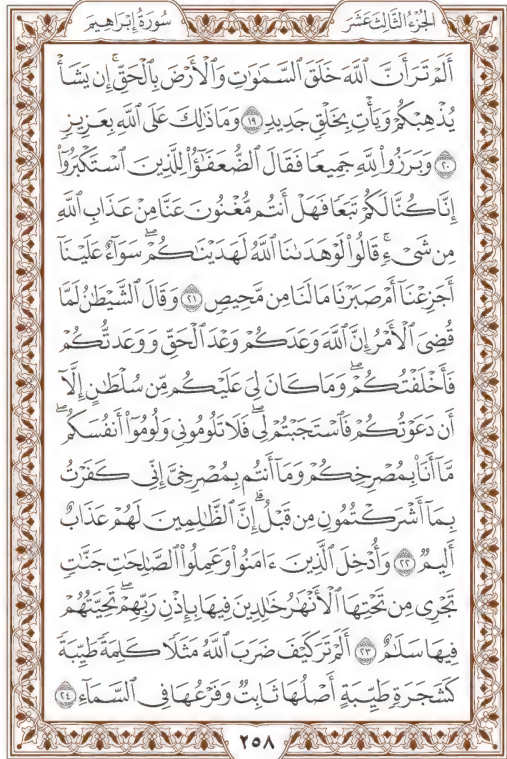 الجُزْءُ الثَّالِثَ عَشَرَ
سُورَةُ إِبْرَاهِيمَ
أَلَمْ تَرَ أَنَّ ٱللَّهَ خَلَقَ ٱلسَّمَٰوَٰتِ وَٱلْأَرْضَ بِٱلْحَقِّ ۚ إِن يَشَأْ
يُذْهِبْكُمْ وَيَأْتِ بِخَلْقٍ جَدِيدٍ ١٩ وَمَا ذَٰلِكَ عَلَى ٱللَّهِ بِعَزِيزٍ
٢٠ وَبَرَزُوا۟ لِلَّهِ جَمِيعًا فَقَالَ ٱلضُّعَفَٰٓؤُا۟ لِلَّذِينَ ٱسْتَكْبَرُوٓا۟
إِنَّا كُنَّا لَكُمْ تَبَعًا فَهَلْ أَنتُم مُّغْنُونَ عَنَّا مِنْ عَذَابِ ٱللَّهِ
مِن شَىْءٍ ۚ قَالُوا۟ لَوْ هَدَىٰنَا ٱللَّهُ لَهَدَيْنَٰكُمْ ۖ سَوَآءٌ عَلَيْنَآ
أَجَزِعْنَآ أَمْ صَبَرْنَا مَا لَنَا مِن مَّحِيصٍ ٢١ وَقَالَ ٱلشَّيْطَٰنُ لَمَّا
قُضِىَ ٱلْأَمْرُ إِنَّ ٱللَّهَ وَعَدَكُمْ وَعْدَ ٱلْحَقِّ وَوَعَدتُّكُمْ
فَأَخْلَفْتُكُمْ ۖ وَمَا كَانَ لِىَ عَلَيْكُم مِّن سُلْطَٰنٍ إِلَّآ
أَن دَعَوْتُكُمْ فَٱسْتَجَبْتُمْ لِى ۖ فَلَا تَلُومُونِى وَلُومُوٓا۟ أَنفُسَكُم ۖ
مَّآ أَنَا۠ بِمُصْرِخِكُمْ وَمَآ أَنتُم بِمُصْرِخِىَّ ۖ إِنِّى كَفَرْتُ
بِمَآ أَشْرَكْتُمُونِ مِن قَبْلُ ۗ إِنَّ ٱلظَّٰلِمِينَ لَهُمْ عَذَابٌ
أَلِيمٌ ٢٢ وَأُدْخِلَ ٱلَّذِينَ ءَامَنُوا۟ وَعَمِلُوا۟ ٱلصَّٰلِحَٰتِ جَنَّٰتٍ
تَجْرِى مِن تَحْتِهَا ٱلْأَنْهَٰرُ خَٰلِدِينَ فِيهَا بِإِذْنِ رَبِّهِمْ ۖ تَحِيَّتُهُمْ
فِيهَا سَلَٰمٌ ٢٣ أَلَمْ تَرَ كَيْفَ ضَرَبَ ٱللَّهُ مَثَلًا كَلِمَةً طَيِّبَةً
كَشَجَرَةٍ طَيِّبَةٍ أَصْلُهَا ثَابِتٌ وَفَرْعُهَا فِى ٱلسَّمَآءِ ٢٤
٢٥٨